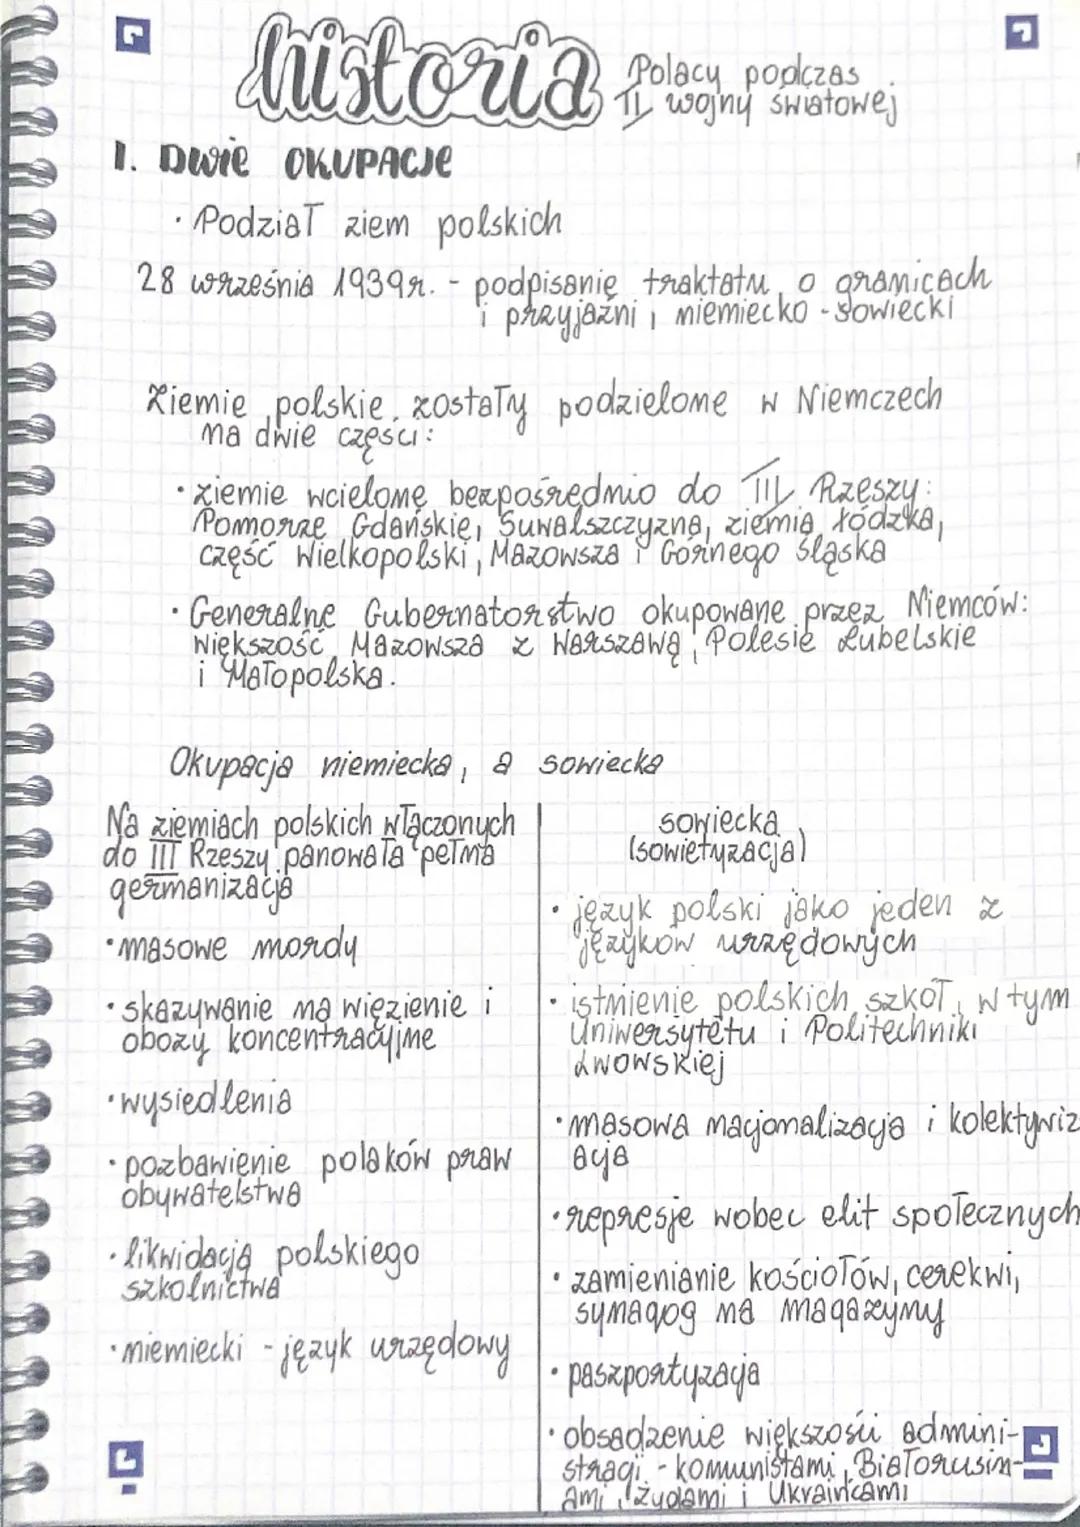 historia Polacy podczas
II wojny światowej
1. Dwie OKUPACJE
· Podział ziem polskich
28 września 1939r. - podpisanie traktatu o granicach
i przyjaźni niemiecko - sowiecki
Ziemie polskie zostały podzielone w Niemczech
na dwie części:
· ziemie wcielone bezpośrednio do III Rzeszy:
Pomorze Gdańskie, Suwalszczyzna, ziemia łódzka,
część Wielkopolski, Mazowsza i Górnego Śląska
· Generalne Gubernatorstwo okupowane przez Niemców:
większość Mazowsza z Warszawą, Polesie Lubelskie
i Małopolska.
Okupacja niemiecka, a sowiecka
Na ziemiach polskich włączonych
do III Rzeszy panowała pełna
germanizacja
· masowe mordy
· skazywanie na więzienie i
obozy koncentracyjne
· wysiedlenia
· pozbawienie polaków praw
obywatelstwa
· likwidacja polskiego
szkolnictwa
· niemiecki - język urzędowy
sowiecka
(sowietyzacja)
· język polski jako jeden z
języków urzędowych
· istnienie polskich szkół, w tym
Uniwersytetu i Politechniki
Lwowskiej
· masowa nacjonalizacja i kolektywiz
acja
· represje wobec elit społecznych
· zamienianie kościołów, cerekwi,
synagog na magazyny
· paszportyzacja
· obsadzenie większości admini-
stracji - komunistami, Białorusin-
ami, Żydami i Ukraińcami